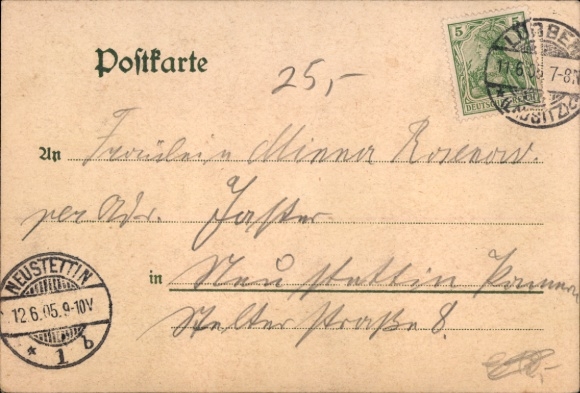 Postkarte
25,-
5
DEUTSCH
LÜBBEN
11.6.05. 7-8
An Fräulein Minna Rosenow.
per Adr. Jaster
in Neustettin
Stelter straße 8.
NEUSTETTIN
12.6.05. 9-10V
* 1 b